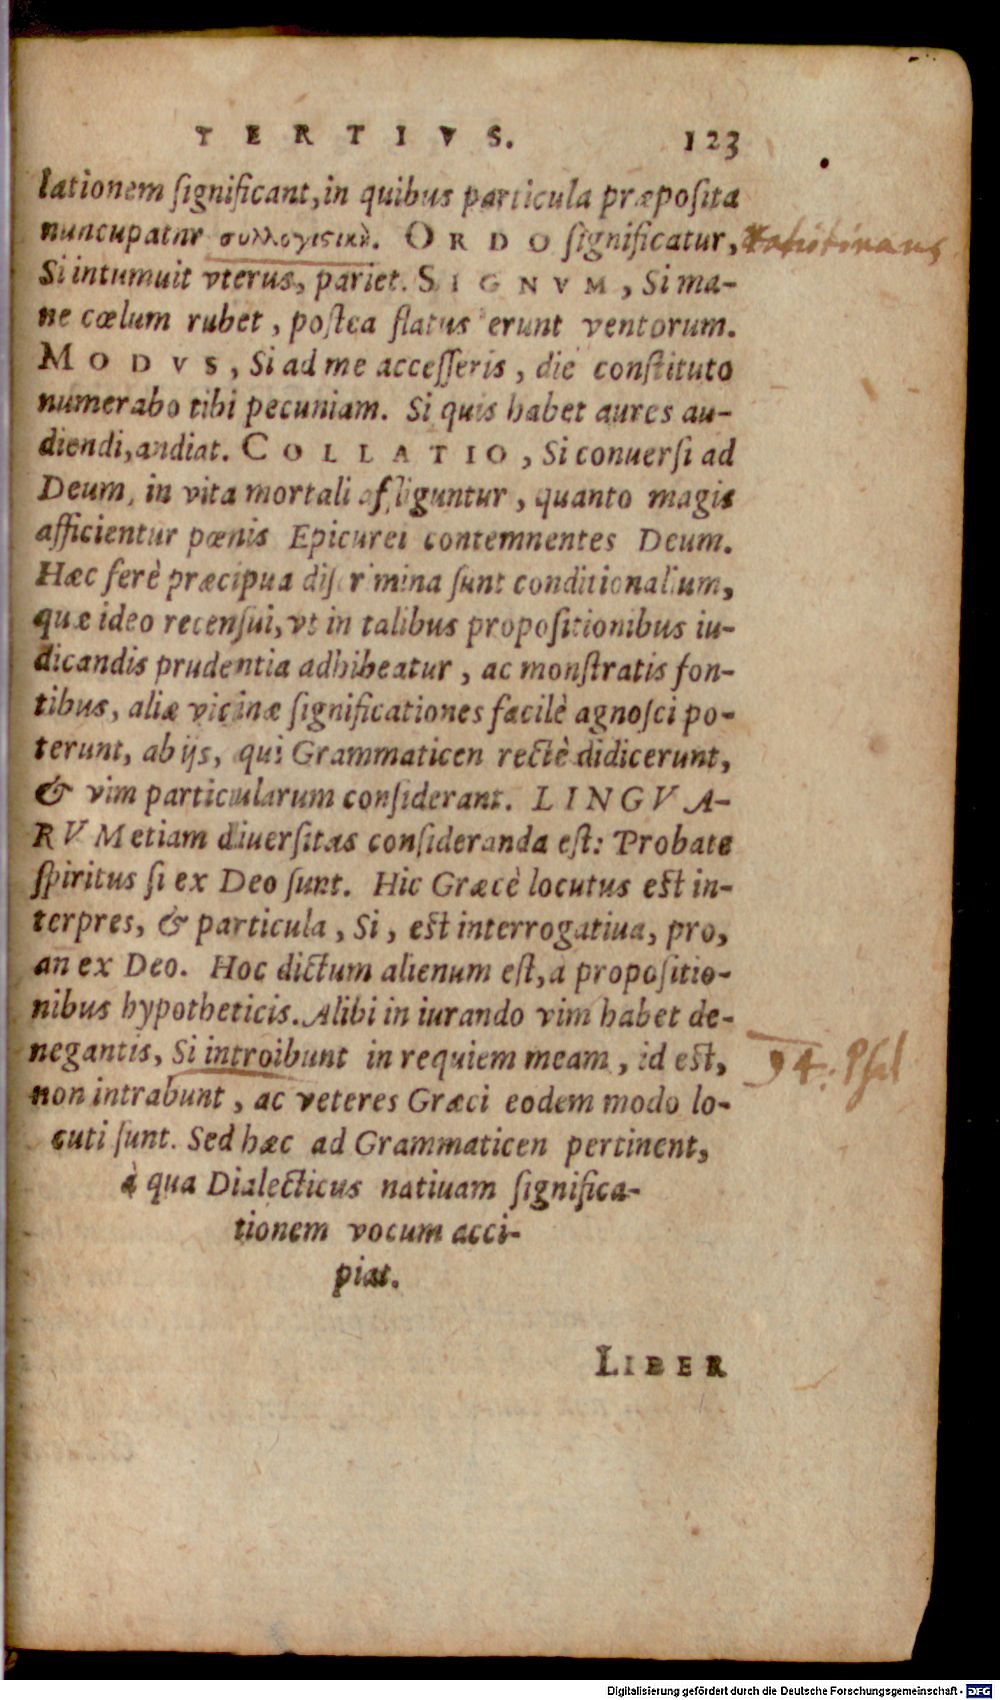 TERTIVS. 123
lationem ſignificant, in quibus particula præpoſita
nuncupatur συλλογιςικὴ. ORDO ſignificatur,
Si intumuit vterus, pariet. SIGNVM, Si ma-
ne cœlum rubet, poſtea flatus erunt ventorum.
MODVS, Si ad me acceſſeris, die conſtituto
numerabo tibi pecuniam. Si quis habet aures au-
diendi, audiat. COLLATIO, Si conuerſi ad
Deum, in vita mortali affliguntur, quanto magis
afficientur pœnis Epicurei contemnentes Deum.
Hæc ferè præcipua diſcrimina ſunt conditionalium,
quæ ideo recenſui, vt in talibus propoſitionibus iu-
dicandis prudentia adhibeatur, ac monſtratis fon-
tibus, aliæ vicinæ ſignificationes facilè agnoſci po-
terunt, ab ijs, qui Grammaticen rectè didicerunt,
& vim particularum conſiderant. LINGVA-
RVM etiam diuerſitas conſideranda eſt: Probate
ſpiritus ſi ex Deo ſunt. Hic Græcè locutus eſt in-
terpres, & particula, Si, eſt interrogatiua, pro,
an ex Deo. Hoc dictum alienum eſt, a propoſitio-
nibus hypotheticis. Alibi in iurando vim habet de-
negantis, Si introibunt in requiem meam, id eſt,
94. Psal
non intrabunt, ac veteres Græci eodem modo lo-
cuti ſunt. Sed hæc ad Grammaticen pertinent,
à qua Dialecticus natiuam ſignifica-
tionem vocum acci-
piat.
LIBER
Digitalisierung gefördert durch die Deutsche Forschungsgemeinschaft - DFG